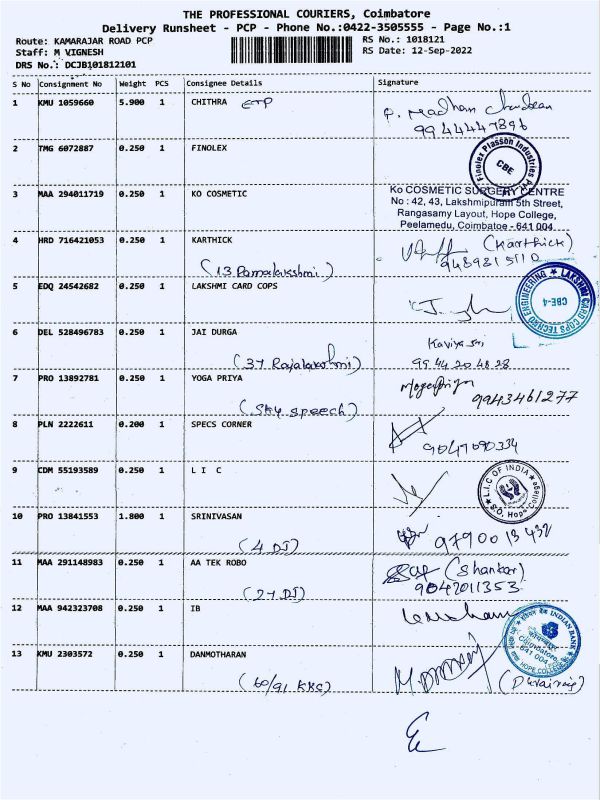 THE PROFESSIONAL COURIERS, Coimbatore
Delivery Runsheet - PCP - Phone No.:0422-3505555 - Page No.:1
Route: KAMARAJAR ROAD PCP
RS No.: 1018121
Staff: M VIGNESH
RS Date: 12-Sep-2022
DRS No.: DCJB101812101
S No Consignment No Weight PCS Consignee Details Signature
1 KMU 1059660 5.900 1 CHITHRA ETP
9944447896
2 TMG 6072887 0.250 1 FINOLEX
Finolex Plasson Industries
CBE
3 MAA 294011719 0.250 1 KO COSMETIC
Ko COSMETIC SURGERY CENTRE
No : 42, 43, Lakshmipuram 5th Street,
Rangasamy Layout, Hope College,
Peelamedu, Coimbatoe - 641 004
4 HRD 716421053 0.250 1 KARTHICK (Karthick)
(13 Ramalakshmi)
5 EDQ 24542682 0.250 1 LAKSHMI CARD COPS
LAKSHMI CARD COPS TECHNO ENGINEERING
CBE-4
6 DEL 528496783 0.250 1 JAI DURGA
(37 Rajalakshmi) 9944204828
7 PRO 13892781 0.250 1 YOGA PRIYA
(Sky speech) 9943461277
8 PLN 2222611 0.200 1 SPECS CORNER
9047090334
9 CDM 55193589 0.250 1 L I C
L.I.C OF INDIA
S.O. Hope College
10 PRO 13841553 1.800 1 SRINIVASAN
(4 DJ) 9790013432
11 MAA 291148983 0.250 1 AA TEK ROBO (Shankar)
(27 DJ) 9042011353
12 MAA 942323708 0.250 1 IB
INDIAN BANK
641 004
HOPE COLLEGE
13 KMU 2303572 0.250 1 DANMOTHARAN
(60/91 KRC)